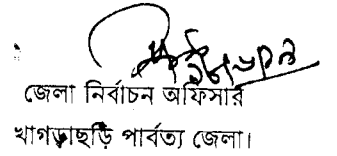 জেলা নির্বাচন অফিসার
খাগড়াছড়ি পার্বত্য জেলা।